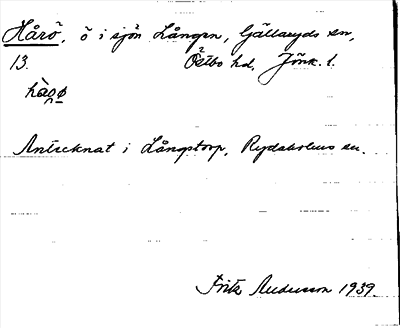 Hårö, ö i sjön Lången, Gällaryds sn,
13. Östbo hd, Jönk. l.
hàrø
Antecknat i Långstorp, Rydaholms sn.
Fritz Andersson 1939.